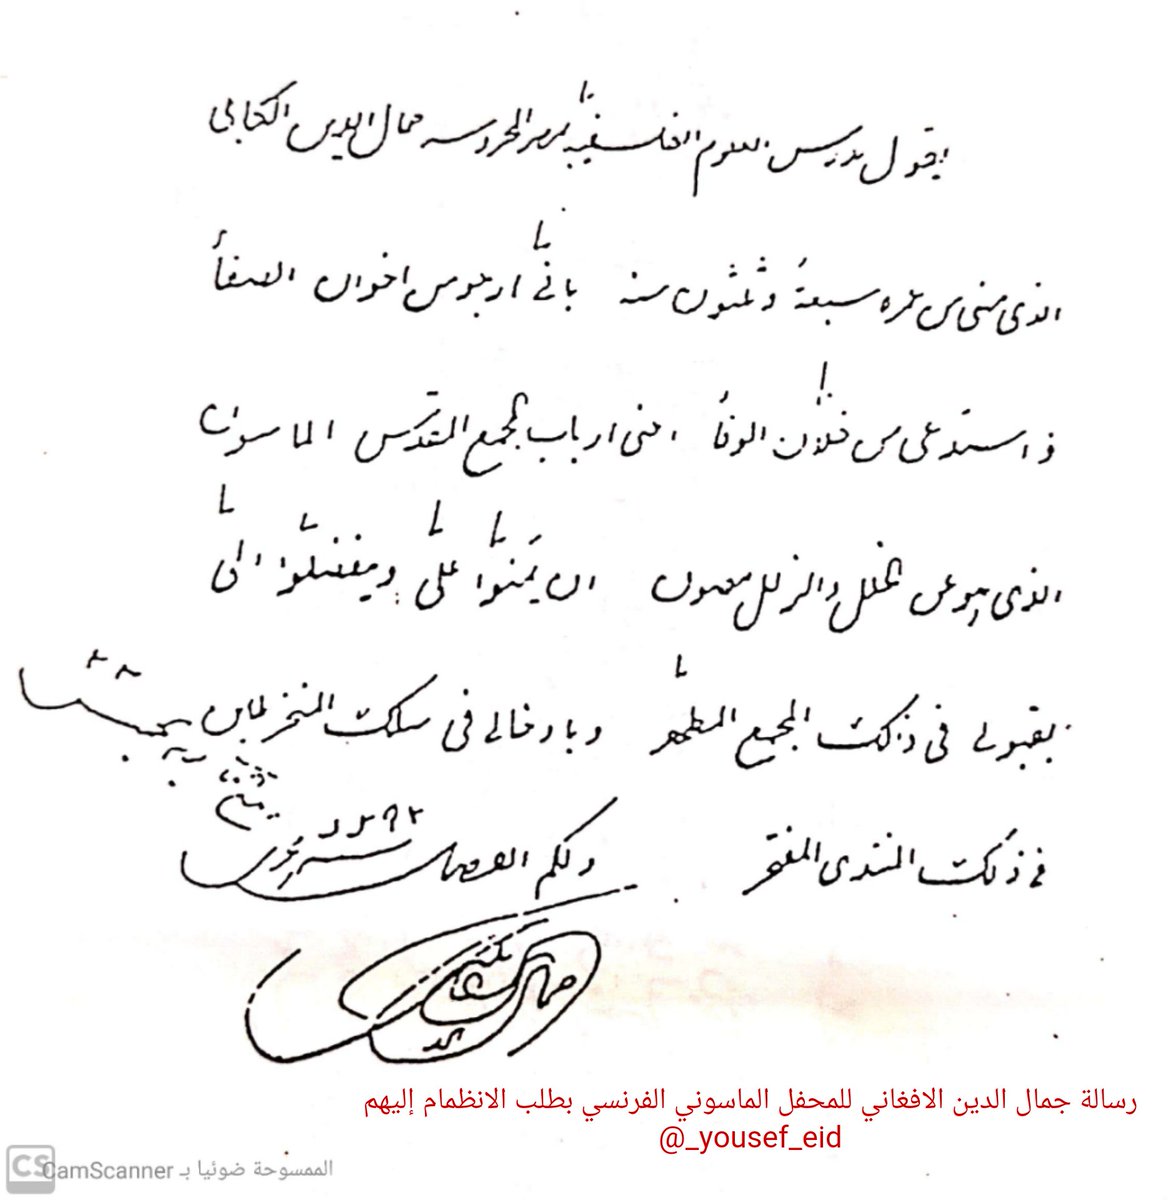 يقول مدرس العلوم الفلسفية بمصر المحروسه جمال الدين الكابلي
الذى مضى من عمره سبعة وثلثون سنه بانى ارجو من اخوان الصفأ
واستدعى من خلان الوفأ اعنى ارباب المجمع المقدس الماسون
الذى هو عن الخلل والزلل مصون ان يمنوا على ويتفضلوا الى
بقبولى فى ذلك المجمع المطهر وبادخالى فى سلك المنخرطين
فى ذلك المنتدى المفتخر ولكم الفضل
جمال الدين
رسالة جمال الدين الافغاني للمحفل الماسوني الفرنسي بطلب الانظمام إليهم
@_yousef_eid
CS CamScanner الممسوحة ضوئيا بـ